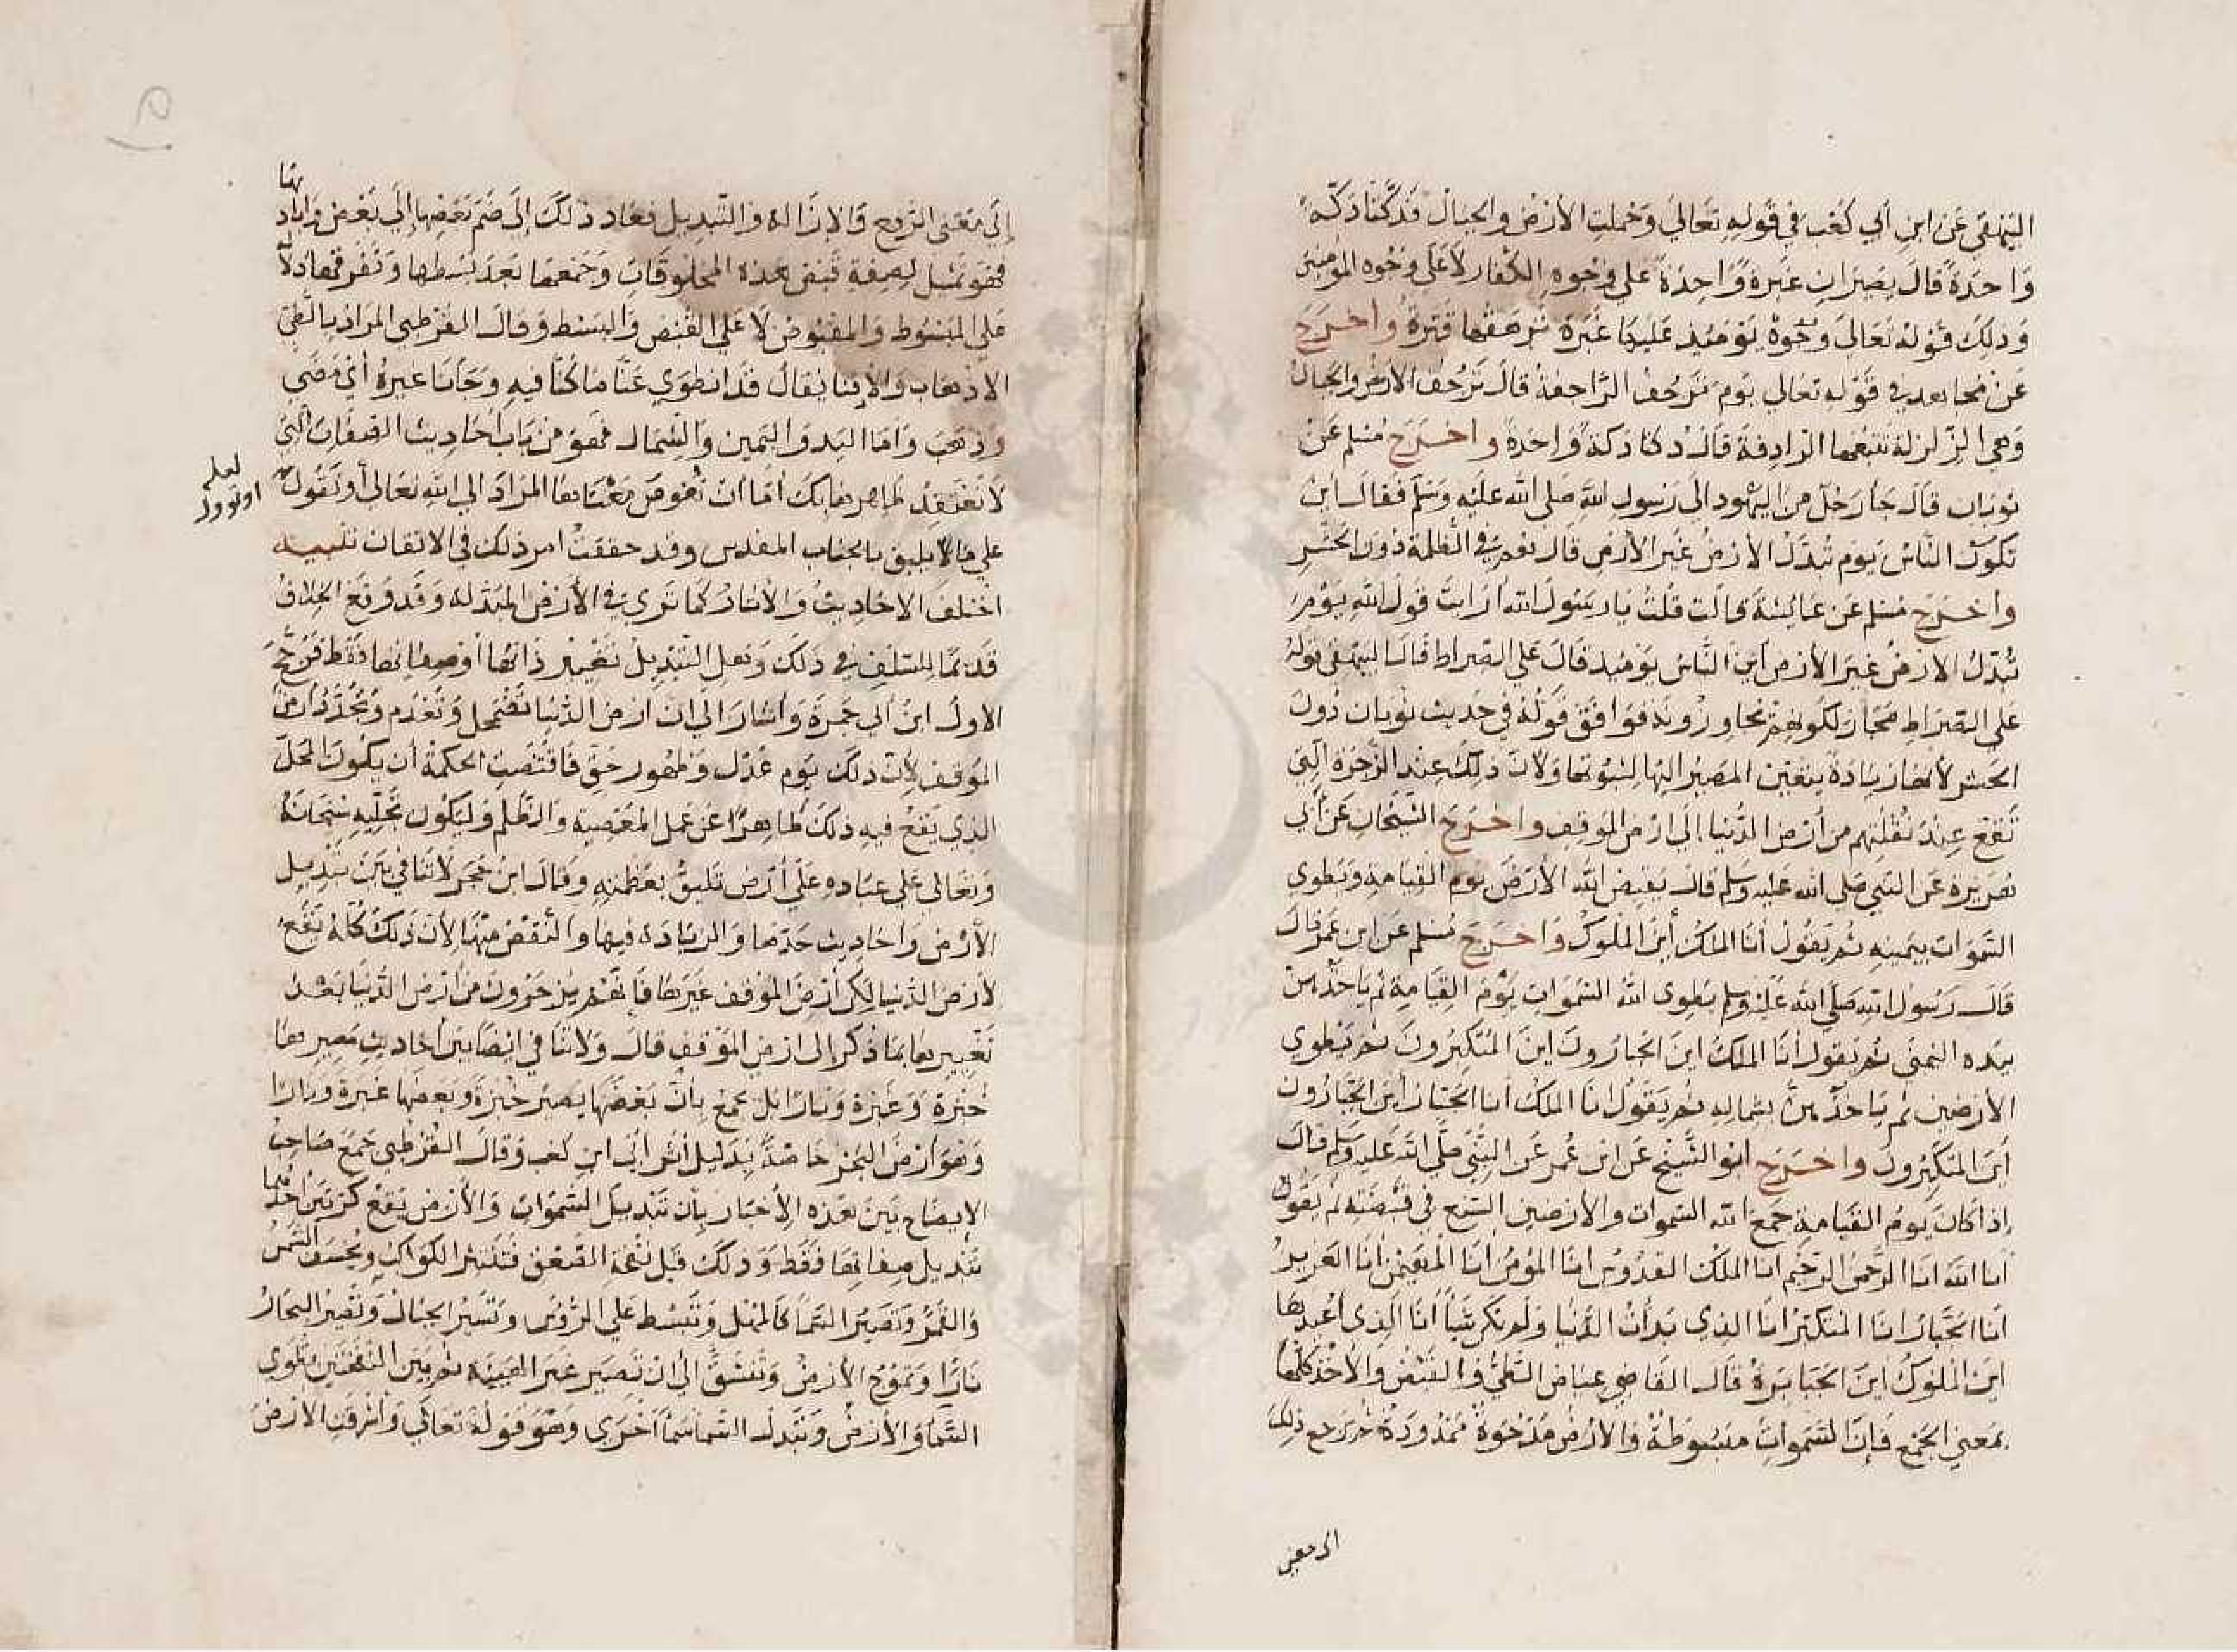 البيهقي عن ابن أبي كعب في قوله تعالى وحملت الأرض والجبال فدكتا دكة
واحدة قال يصيران غبرة واحدة على وجوه الكفار لا على وجوه المؤمنين
وذلك قوله تعالى وجوه يومئذ عليها غبرة ترهقها قترة وأخرج
عن مجاهد في قوله تعالى يوم ترجف الراجفة قال ترجف الأرض والجبال
وهي الزلزلة تتبعها الرادفة قال دكتا دكة واحدة وأخرج مسلم عن
ثوبان قال جاء رجل من اليهود إلى رسول الله صلى الله عليه وسلم فقال أين
تكون الناس يوم تبدل الأرض غير الأرض قال هم في الظلمة دون الجسر
وأخرج مسلم عن عائشة قالت قلت يا رسول الله أرأيت قول الله يوم
تبدل الأرض غير الأرض أين الناس يومئذ قال على الصراط قال البيهقي قوله
على الصراط مجاز لكونهم يجاوزونه فوافق قوله في حديث ثوبان دون
الجسر لأنها زيادة يتعين المصير إليها لثبوتها ولأن ذلك عند الزجرة التي
تقع عند نقلتهم من أرض الدنيا إلى أرض الموقف وأخرج الشيخان عن أبي
هريرة عن النبي صلى الله عليه وسلم قال يقبض الله الأرض يوم القيامة ويطوي
السموات بيمينه ثم يقول أنا الملك أين الملوك وأخرج مسلم عن ابن عمر قال
قال رسول الله صلى الله عليه وسلم يطوي الله السموات يوم القيامة ثم يأخذهن
بيده اليمنى ثم يقول أنا الملك أين الجبارون أين المتكبرون ثم يطوي
الأرضين ثم يأخذهن بشماله ثم يقول أنا الملك أنا الجبار أين الجبارون
أين المتكبرون وأخرج أبو الشيخ عن ابن عمر عن النبي صلى الله عليه وسلم قال
إذا كان يوم القيامة جمع الله السموات والأرضين السبع في قبضته ثم يقول
أنا الله أنا الرحمن الرحيم أنا الملك القدوس أنا المؤمن أنا المهيمن أنا العزيز
أنا الجبار أنا المتكبر أنا الذي بدأت الدنيا ولم تكن شيئا أنا الذي أعيدها
أين الملوك أين الجبابرة قال القاضي عياض الطي والقبض والأخذ كلها
بمعنى الجمع فإن السموات مبسوطة والأرض مدحوة ممدودة ثم رجع ذلك
إلى معنى
إلى معنى الرفع والإزالة والتبديل فعاد ذلك إلى ضم بعضها إلى بعض وإبادتها
فهو تمثيل لصفة قبض هذه المخلوقات وجمعها بعد بسطها وتفرقها دلالة
على المبسوط والمقبوض لا على القبض والبسط وقال القرطبي المراد بالطي
الإذهاب والإفنا يقال قد انطوى عنا ما كنا فيه وجأنا غيره أي مضى
وذهب وأما اليد واليمين والشمال فهو من باب أحاديث الصفات التي
لا نعتقد ظاهرها بك أما أن نفوض معناها المراد إلى الله تعالى أو نقول
لعله
أو نؤول
على ما لا يليق بالجناب المقدس وقد حققت أمر ذلك في الإتقان تنبيه
اختلف الأحاديث والآثار كما ترى في الأرض المبدلة وقد وقع الخلاف
قديما للسلف في ذلك وهل التبديل تغيير ذاتها أو صفاتها فقط فرجح
الأول ابن أبي جمرة وأشار إلى أن أرض الدنيا تضمحل وتعدم وتجدد أرض
الموقف لأن ذلك يوم عدل وظهور حق فاقتضت الحكمة أن يكون المحل
الذي يقع فيه ذلك طاهرا عن عمل المعصية والظلم وليكون تجليه سبحانه
وتعالى على عباده على أرض تليق بعظمته وقال ابن حجر لا تنافي بين تبديل
الأرض وأحاديث مدها والزيادة فيها والنقص منها لأن ذلك كله يقع
لأرض الدنيا لكن أرض الموقف غيرها فإنهم يزجرون من أرض الدنيا بعد
تغييرها بما ذكر إلى أرض الموقف قال ولا تنافي أيضا بين أحاديث مصيرها
خبزة وغبرة ونارا بل يجمع بأن بعضها يصير خبزة وبعضها غبرة ونارا
وهو أرض البحر خاصة بدليل أثر أبي ابن كعب وقال القرطبي جمع صاحب
الإيضاح بين هذه الأخبار بأن تبديل السموات والأرض يقع كرتين أحدهما
تبديل صفاتها فقط وذلك قبل نفخة الصعق فتنثر الكواكب ويخسف الشمس
والقمر وتصير السما كالمهل وتبسط على الرؤس وتسير الجبال وتصير البحار
نارا وتموج الأرض وتنشق إلى أن تصير غير الهيئة ثم بين النفختين تطوى
السما والأرض وتبدل السما سما أخرى وهو قوله تعالى وأشرقت الأرض